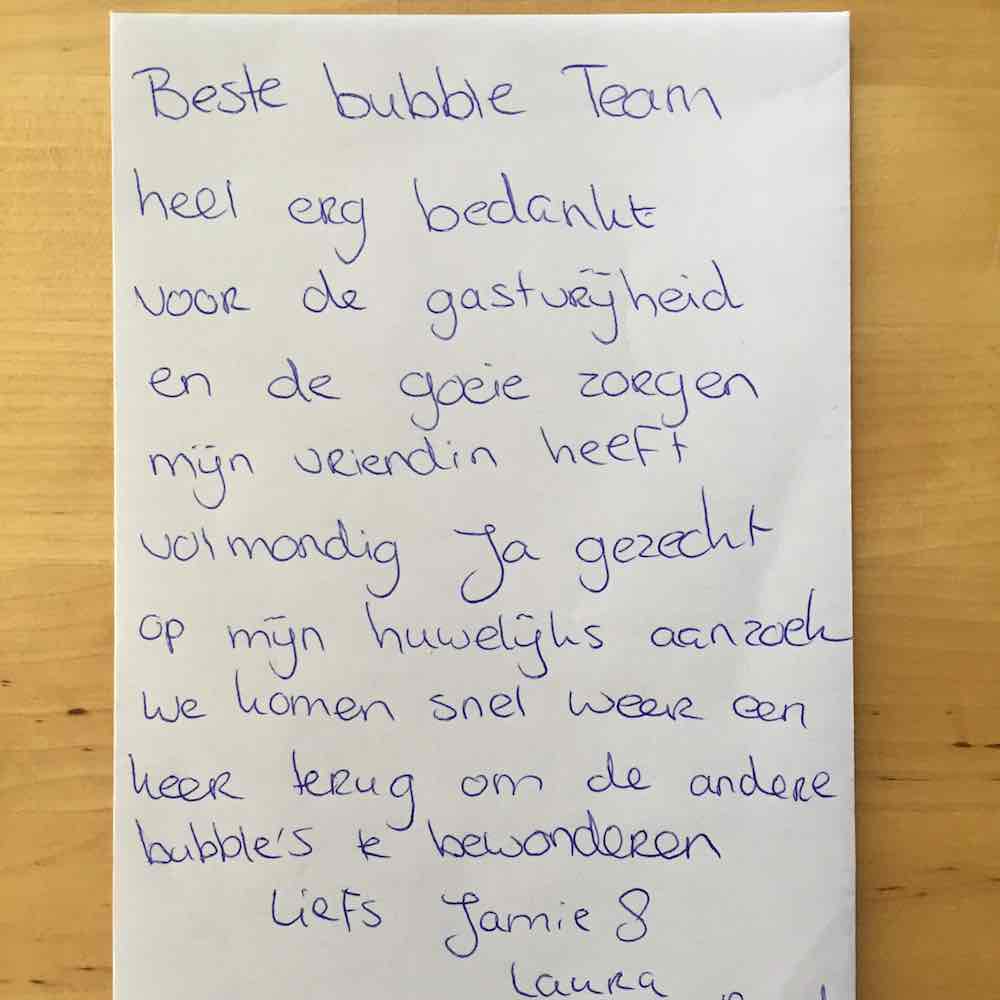 Beste bubble Team
heel erg bedankt
voor de gastvrijheid
en de goeie zorgen
mijn vriendin heeft
volmondig Ja gezecht
op mijn huwelijks aanzoek
we komen snel weer een
keer terug om de andere
bubble's te bewonderen
Liefs Jamie &
Laura